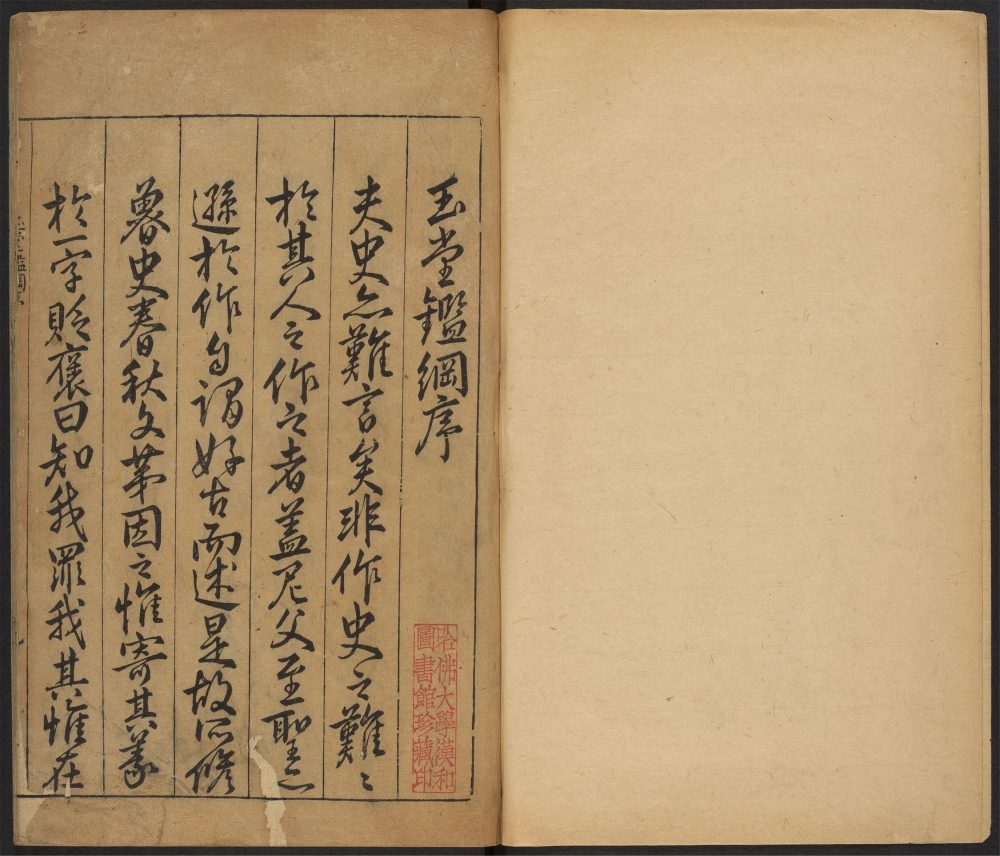 玉堂鑑綱序
夫史亦難言矣非作史之難〻
於其人之作之者盖尼父至聖亦
遜於作自謂好古而述是故所修
魯史春秋文第因之惟寄其義
於一字貶褒曰知我罪我其惟在
哈佛大學漢和
圖書館珍藏印